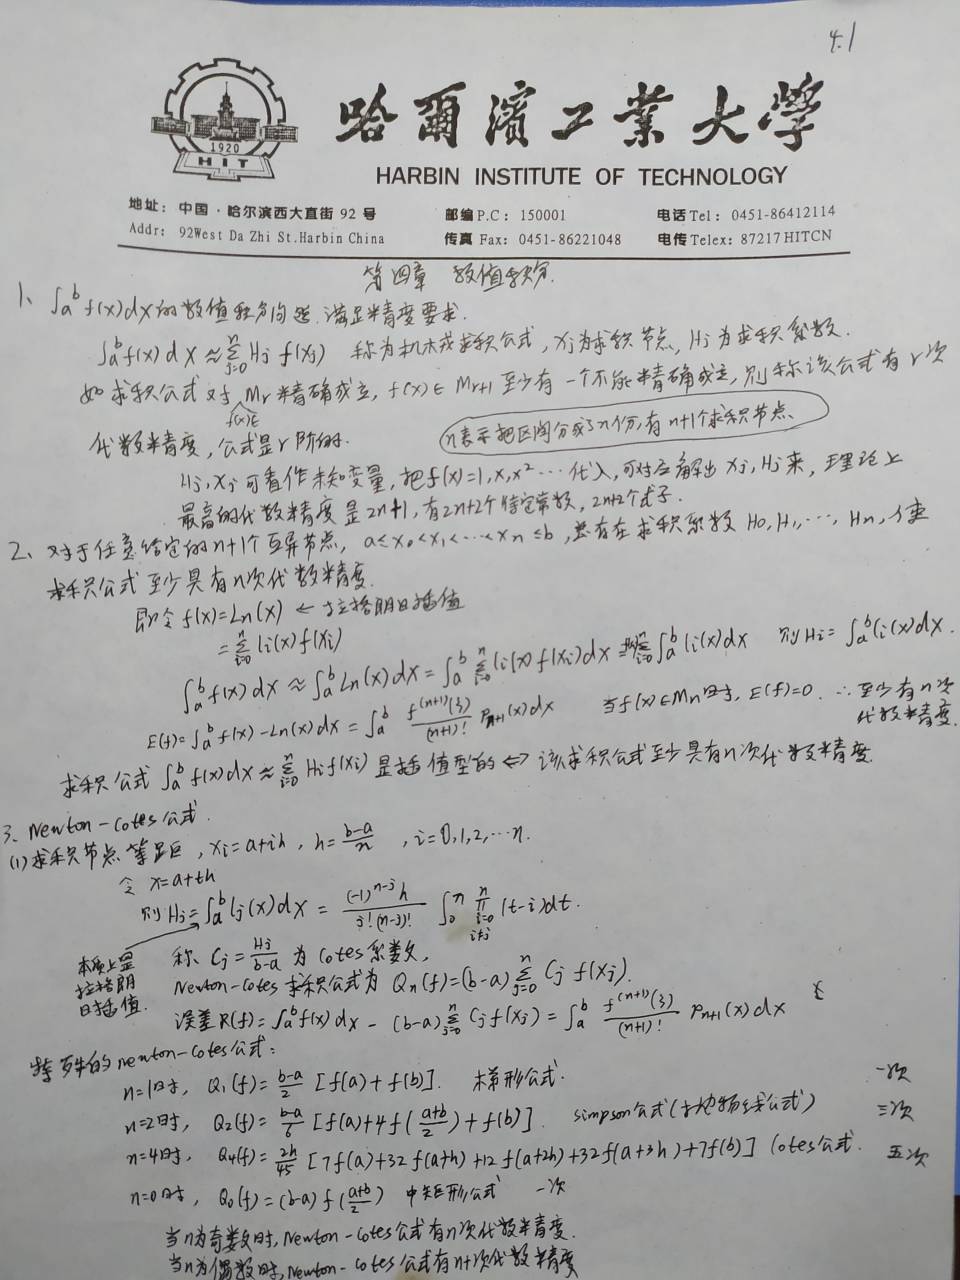 4.1
哈爾濱工業大學
1920
HIT
HARBIN INSTITUTE OF TECHNOLOGY
地址：中国·哈尔滨西大直街 92 号 邮编 P.C： 150001 电话 Tel： 0451-86412114
Addr： 92West Da Zhi St.Harbin China 传真 Fax: 0451-86221048 电传 Telex: 87217 HITCN
第四章 数值积分
1、∫ₐᵇ f(x)dx的数值积分问题.满足精度要求.
∫ₐᵇ f(x)dx ≈ Σⱼ₌₀ⁿ Hj f(xj) 称为机械求积公式，xj为求积节点，Hj为求积系数.
如求积公式对 Mr 精确成立，f(x)∈Mr+1 至少有一个不能精确成立，则称该公式有r次
f(x)∈
代数精度，公式是r阶的.
n表示把区间分成了n份，有n+1个求积节点、
Hj，xj可看作未知变量，把f(x)=1，x，x²…代入，可对应解出xj，Hj来，理论上
最高的代数精度是2n+1，有2n+2个待定常数，2n+2个式子.
2、对于任意给定的n+1个互异节点，a≤x₀<x₁<…<xn≤b，总存在求积系数H₀，H₁，…，Hn，使
求积公式至少具有n次代数精度.
即令 f(x)=Ln(x) ← 拉格朗日插值
=Σᵢ₌₀ⁿ li(x)f(xi)
∫ₐᵇ f(x)dx ≈ ∫ₐᵇ Ln(x)dx = ∫ₐᵇ Σᵢ₌₀ⁿ li(x)f(xi)dx ∫ₐᵇ li(x)dx 则Hi=∫ₐᵇ li(x)dx.
E(f)=∫ₐᵇ f(x)-Ln(x)dx = ∫ₐᵇ f⁽ⁿ⁺¹⁾(ξ)/(n+1)! Pn+1(x)dx 当f(x)∈Mn时，E(f)=0. ∴至少有n次
代数精度.
求积公式 ∫ₐᵇ f(x)dx≈Σᵢ₌₀ⁿ Hif(xi)是插值型的⇔该求积公式至少具有n次代数精度.
3、Newton-Cotes公式.
(1)求积节点等距，xi=a+ih，h=(b-a)/n，i=0，1，2，…n.
令 x=a+th
则Hj=∫ₐᵇ lj(x)dx = (-1)ⁿ⁻ʲh/j!(n-j)! ∫₀ⁿ Πᵢ₌₀ⁿ (t-i)dt.
i≠j
本质上是
拉格朗
日插值.
称 Cj=Hj/(b-a) 为 Cotes系数，
Newton-Cotes求积公式为 Qn(f)=(b-a)Σⱼ₌₀ⁿ Cj f(xj).
误差R(f)=∫ₐᵇ f(x)dx - (b-a)Σⱼ₌₀ⁿ Cjf(xj)=∫ₐᵇ f⁽ⁿ⁺¹⁾(ξ)/(n+1)! Pn+1(x)dx
特殊的newton-Cotes公式：
n=1时，Q₁(f)=(b-a)/2 [f(a)+f(b)]. 梯形公式. 一次
n=2时，Q₂(f)=(b-a)/6 [f(a)+4f((a+b)/2)+f(b)]. simpson公式(抛物线公式) 三次
n=4时，Q₄(f)=2h/45 [7f(a)+32f(a+h)+12f(a+2h)+32f(a+3h)+7f(b)] Cotes公式. 五次
n=0时，Q₀(f)=(b-a)f((a+b)/2) 中矩形公式 一次
当n为奇数时，Newton-Cotes公式有n次代数精度.
当n为偶数时，Newton-Cotes公式有n+1次代数精度